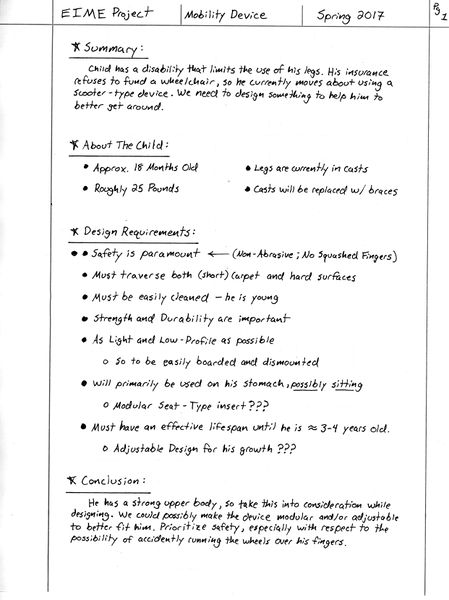 EIME Project | Mobility Device | Spring 2017 | Pg 1
* Summary:
Child has a disability that limits the use of his legs. His insurance
refuses to fund a wheelchair, so he currently moves about using a
scooter-type device. We need to design something to help him to
better get around.
* About The Child:
• Approx. 18 Months Old • Legs are currently in casts
• Roughly 25 Pounds • Casts will be replaced w/ braces
* Design Requirements:
• • Safety is paramount ← (Non-Abrasive; No Squashed Fingers)
• Must traverse both (short) carpet and hard surfaces
• Must be easily cleaned - he is young
• Strength and Durability are important
• As Light and Low-Profile as possible
o So to be easily boarded and dismounted
• Will primarily be used on his stomach, possibly sitting
o Modular Seat-Type insert???
• Must have an effective lifespan until he is ≈ 3-4 years old.
o Adjustable Design for his growth ???
* Conclusion:
He has a strong upper body, so take this into consideration while
designing. We could possibly make the device modular and/or adjustable
to better fit him. Prioritize safety, especially with respect to the
possibility of accidently running the wheels over his fingers.